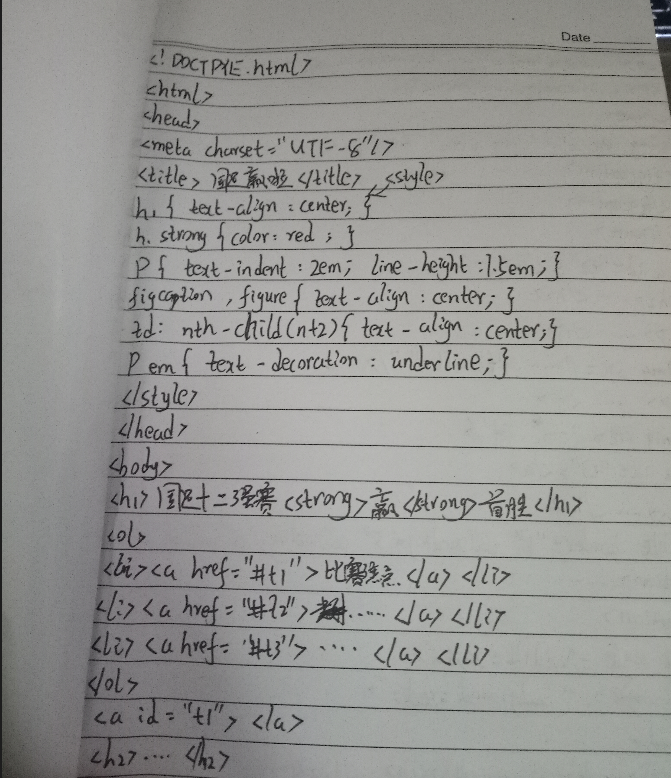 Date
<! DOCTPYE.html>
<html>
<head>
<meta charset="UTF-8"/>
<title> 国足赢啦 </title>, <style>
h1 { text-align : center; }
h1 strong { color: red ; }
P { text-indent : 2em; line-height : 1.5em; }
figcaption , figure { text-align : center; }
td: nth-child(n+2) { text-align : center; }
P em { text-decoration : underline; }
</style>
</head>
<body>
<h1> 国足十二强赛 <strong> 赢 </strong> 首胜 </h1>
<ol>
<li> <a href="#t1"> 比赛 </a> </li>
<li> <a href = "#t2"> ..... </a> </li>
<li> <a href= "#t3"> .... </a> </li>
</ol>
<a id = "t1"> </a>
<h2> .... </h2>